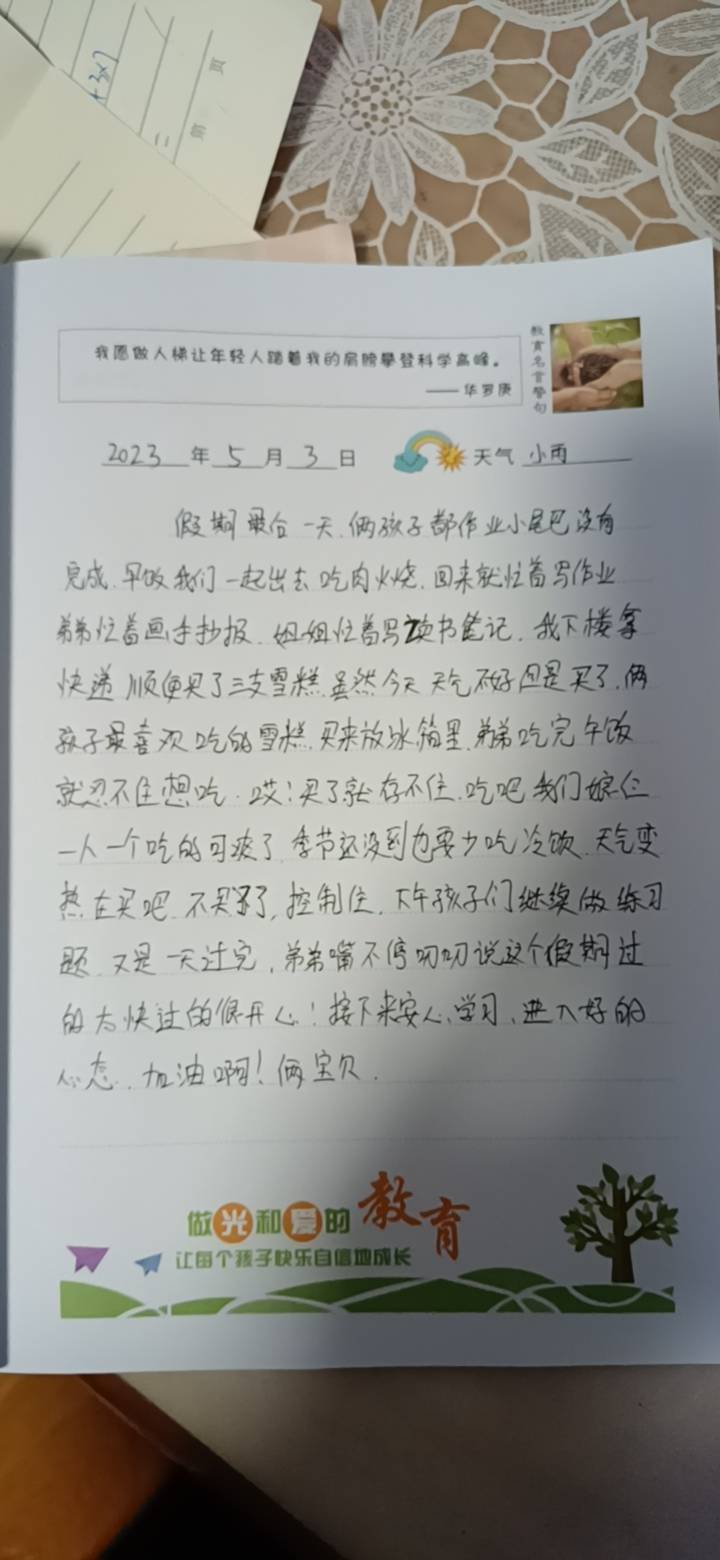 +3×7
第 页
我愿做人梯让年轻人踏着我的肩膀攀登科学高峰。
——华罗庚
教育名言警句
2023年5月3日 天气 小雨
假期最后一天.俩孩子都作业小尾巴没有
完成.早饭我们一起出去吃肉火烧.回来就忙着写作业
弟弟忙着画手抄报.姐姐忙着写读书笔记.我下楼拿
快递 顺便买了三支雪糕.虽然今天天气不好但是买了.俩
孩子最喜欢吃的雪糕.买来放冰箱里.弟弟吃完午饭
就忍不住想吃.哎!买了就存不住.吃吧我们娘仨
一人一个吃的可爽了.季节还没到也要少吃冷饮.天气变
热在买吧.不买了,控制住.下午孩子们继续做练习
题.又是一天过完,弟弟嘴不停叨叨说这个假期过
的太快过的很开心!接下来安心学习、进入好的
心态.加油啊!俩宝贝.
做光和爱的教育
让每个孩子快乐自信地成长